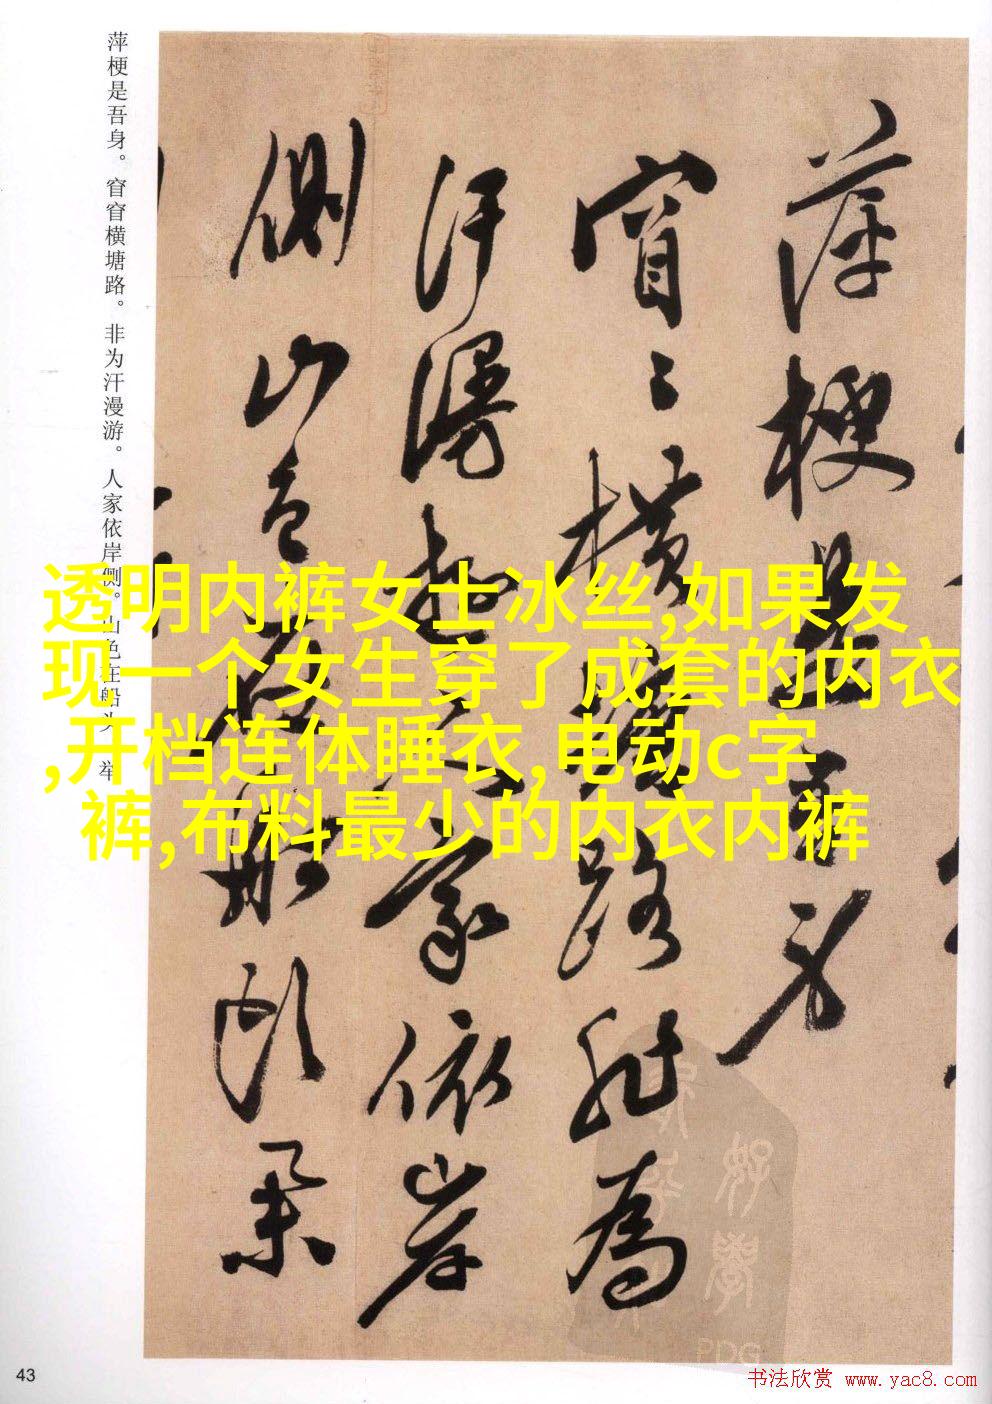 萍梗是吾身。窅窅横塘路。非为汗漫游。人家依岸侧。山色在船头。举
萍梗是吾身
窅〻横塘路非为
汗漫游人家依岸
侧山色在船头举
透明内裤女士冰丝,如果发
现一个女生穿了成套的内衣
,开档连体睡衣,电动c字
裤,布料最少的内衣内裤
PDG
43
书法欣赏 www.yac8.com